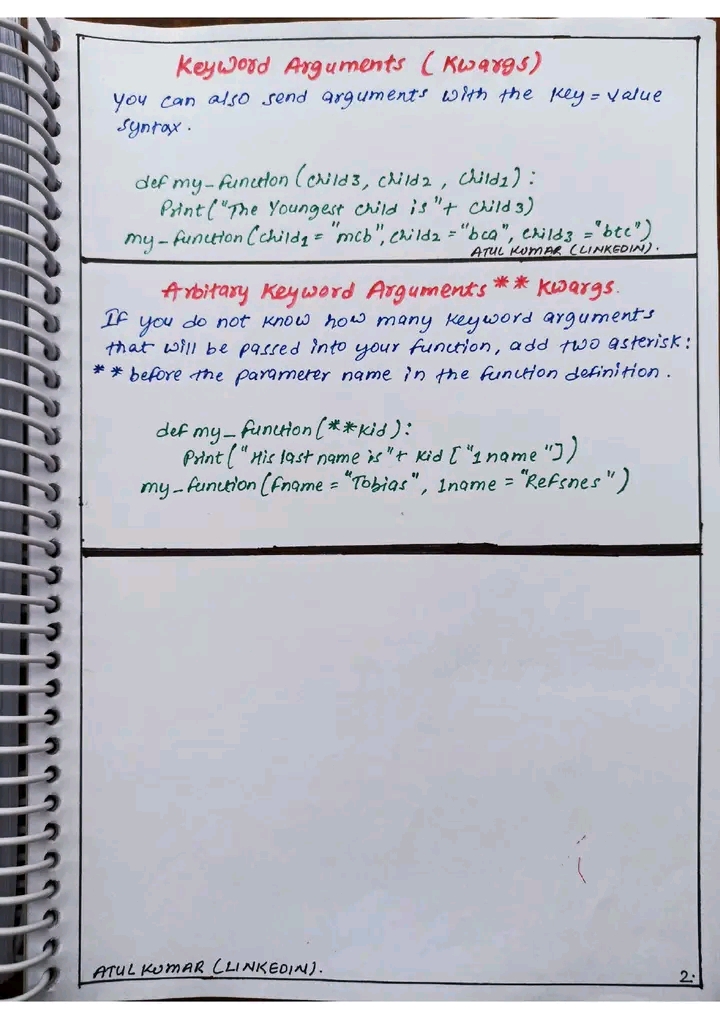 Keyword Arguments ( Kwargs)
You can also send arguments with the key = value
syntax.
def my_function (child3, child2 , child1) :
Print("The Youngest child is "+ child 3)
my_function (child1 = "mcb", child2 = "bca", child3 = "btc")
ATUL KUMAR (LINKEDIN).
Arbitary Keyword Arguments ** Kwargs.
If you do not know how many keyword arguments
that will be passed into your function, add two asterisk:
** before the parameter name in the function definition.
def my_function (**kid) :
Print("His last name is "+ kid ["1name "])
my_function (fname = "Tobias", 1name = "Refsnes ")
ATUL KUMAR (LINKEDIN).
2.